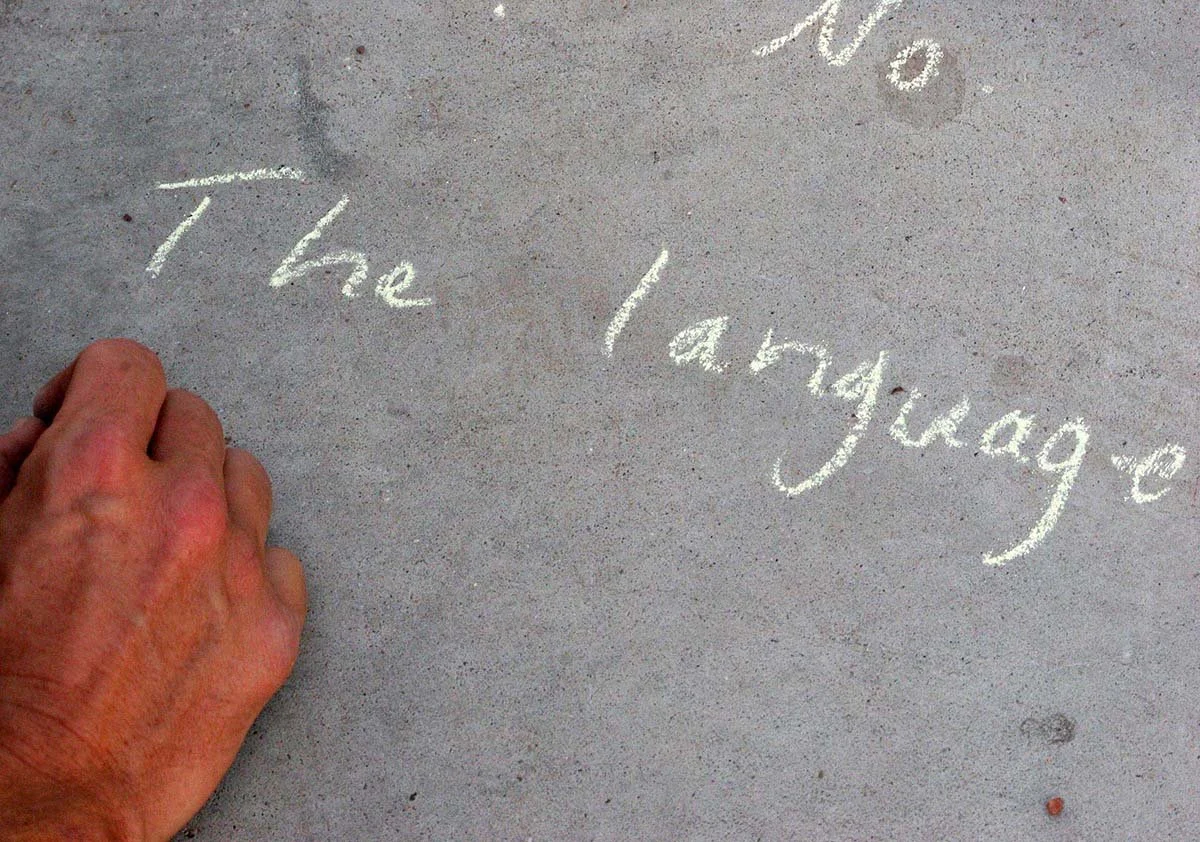 No
The language